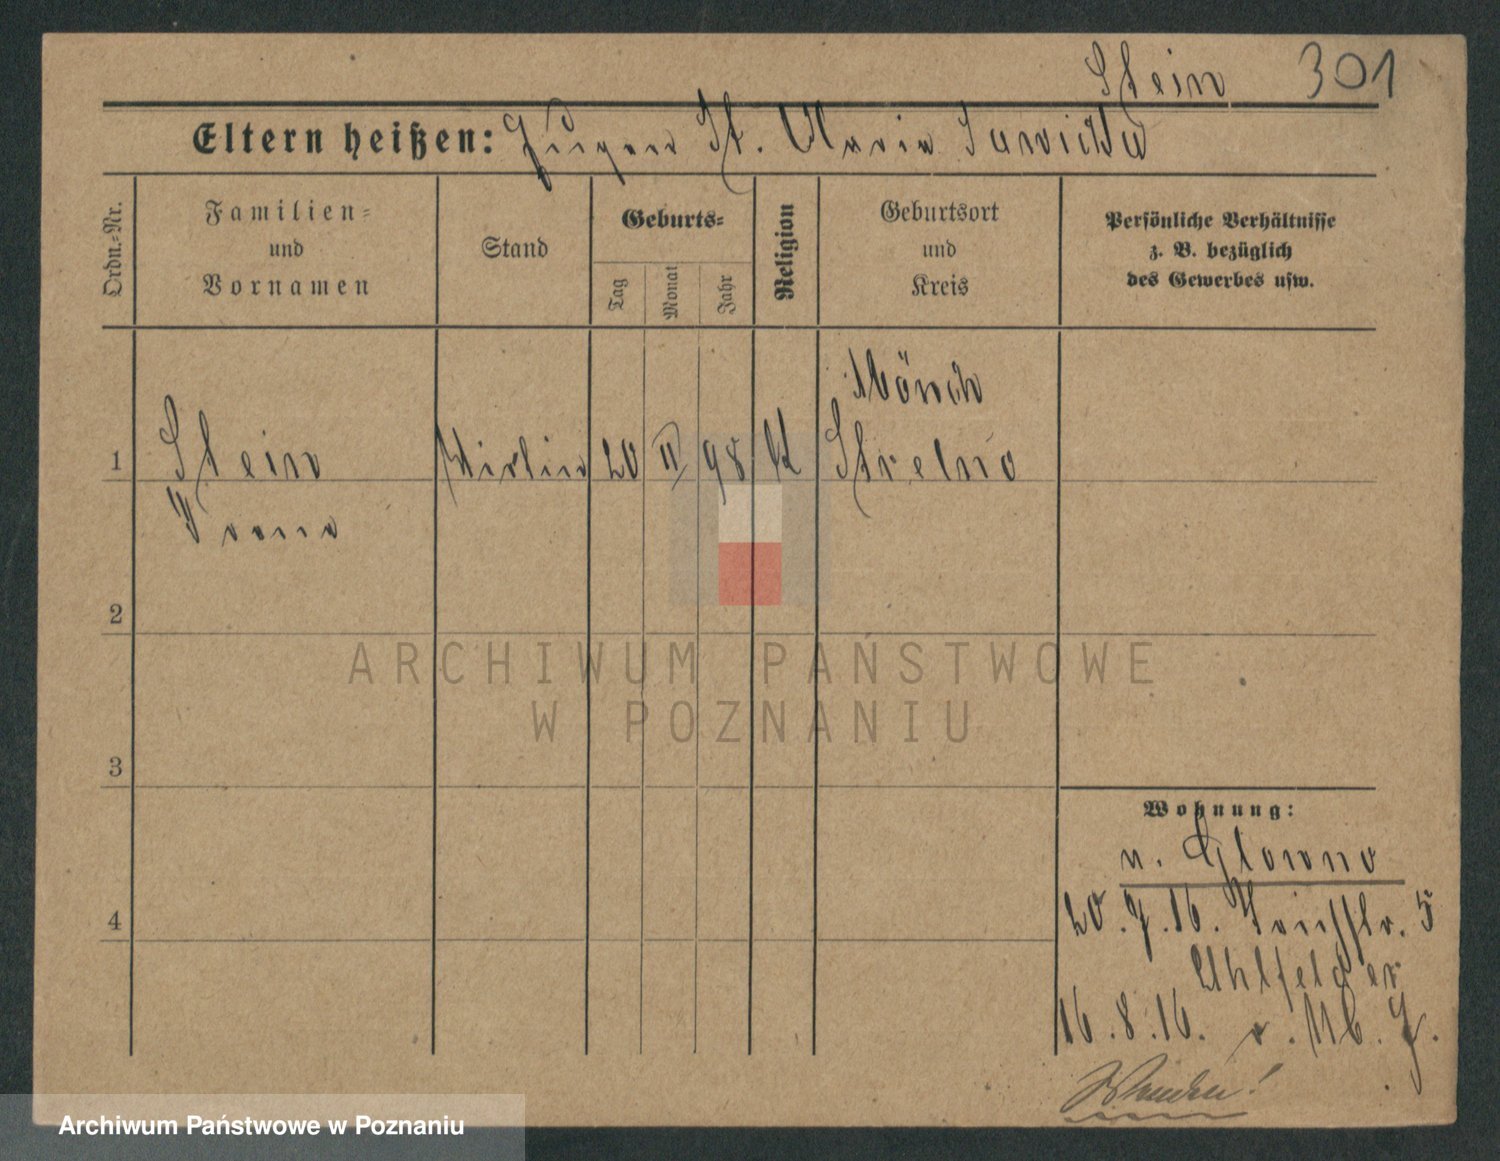 Stein 301
Eltern heißen: Eugen St. Maria
Ordn.-Nr.
Familien-
und
Vornamen
Stand
Geburts-
Tag
Monat
Jahr
Religion
Geburtsort
und
Kreis
Persönliche Verhältnisse
z. B. bezüglich
des Gewerbes usw.
Mönch
1 Stein 20 II 98 K Strelno
2
3
Wohnung:
n. Glowno
4 20.7.16. 5
Uhlfelder
16.8.16. v.
Wenden!
ARCHIWUM PAŃSTWOWE
W POZNANIU
Archiwum Państwowe w Poznaniu